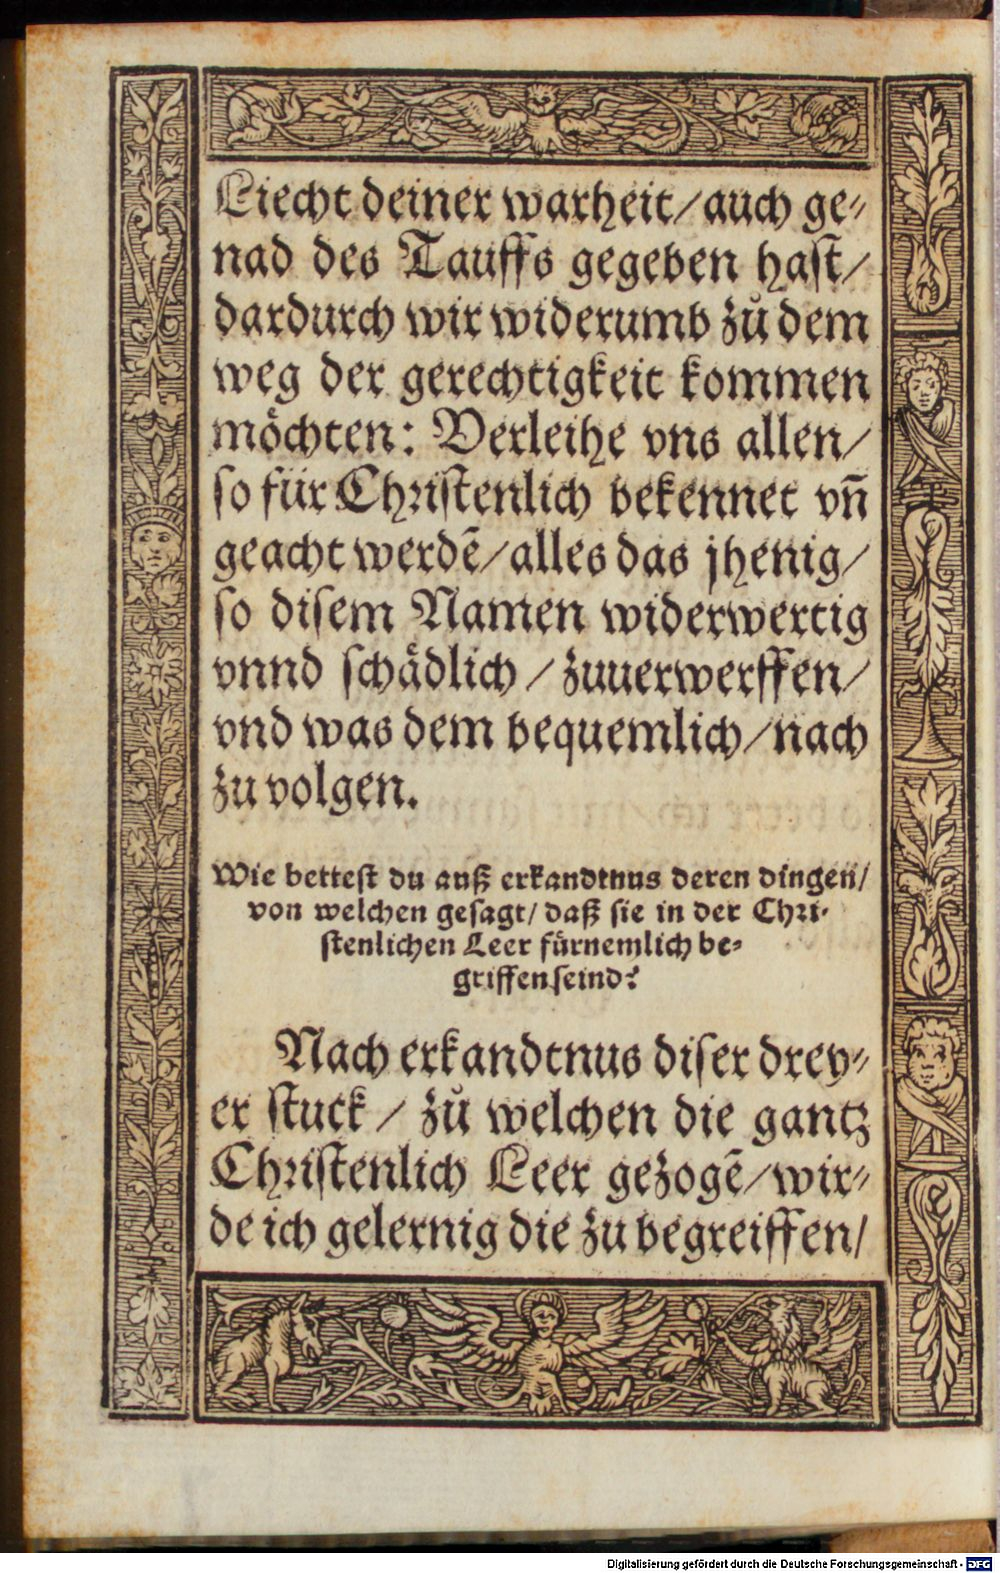 Liecht deiner warheit/auch ge⸗
nad des Tauffs gegeben hast/
dardurch wir widerumb zů dem
weg der gerechtigkeit kommen
möchten: Verleihe vns allen/
so für Christenlich bekennet vñ
geacht werdē/alles das jhenig/
so disem Namen widerwertig
vnnd schådlich / zuuerwerffen/
vnd was dem bequemlich/nach
zu volgen.
Wie bettest du auß erkandtnus deren dingen/
von welchen gesagt/ daß sie in der Chri⸗
stenlichen Leer fürnemlich be⸗
griffen seind?
Nach erkandtnus diser drey⸗
er stuck / zů welchen die gantz
Christenlich Leer gezogē/wir⸗
de ich gelernig die zu begreiffen/
Digitalisierung gefördert durch die Deutsche Forschungsgemeinschaft - DFG